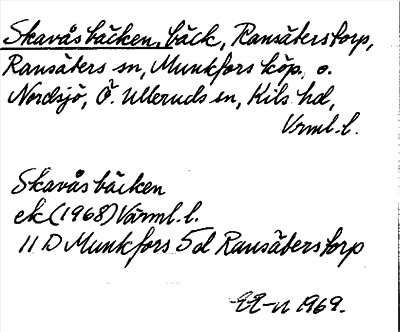 Skavåsbäcken, bäck, Ransäterstorp,
Ransäters sn, Munkfors köp. o.
Nordsjö, Ö. Ulleruds sn, Kils hd,
Vrml. l.
Skavåsbäcken
ek (1968) Värml. l.
11 D Munkfors 5d Ransäterstorp
1969.